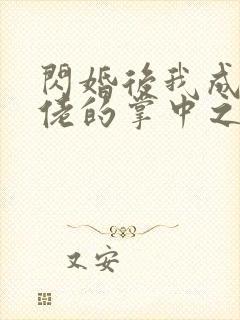 閃婚後我成
佬的掌中之
又安